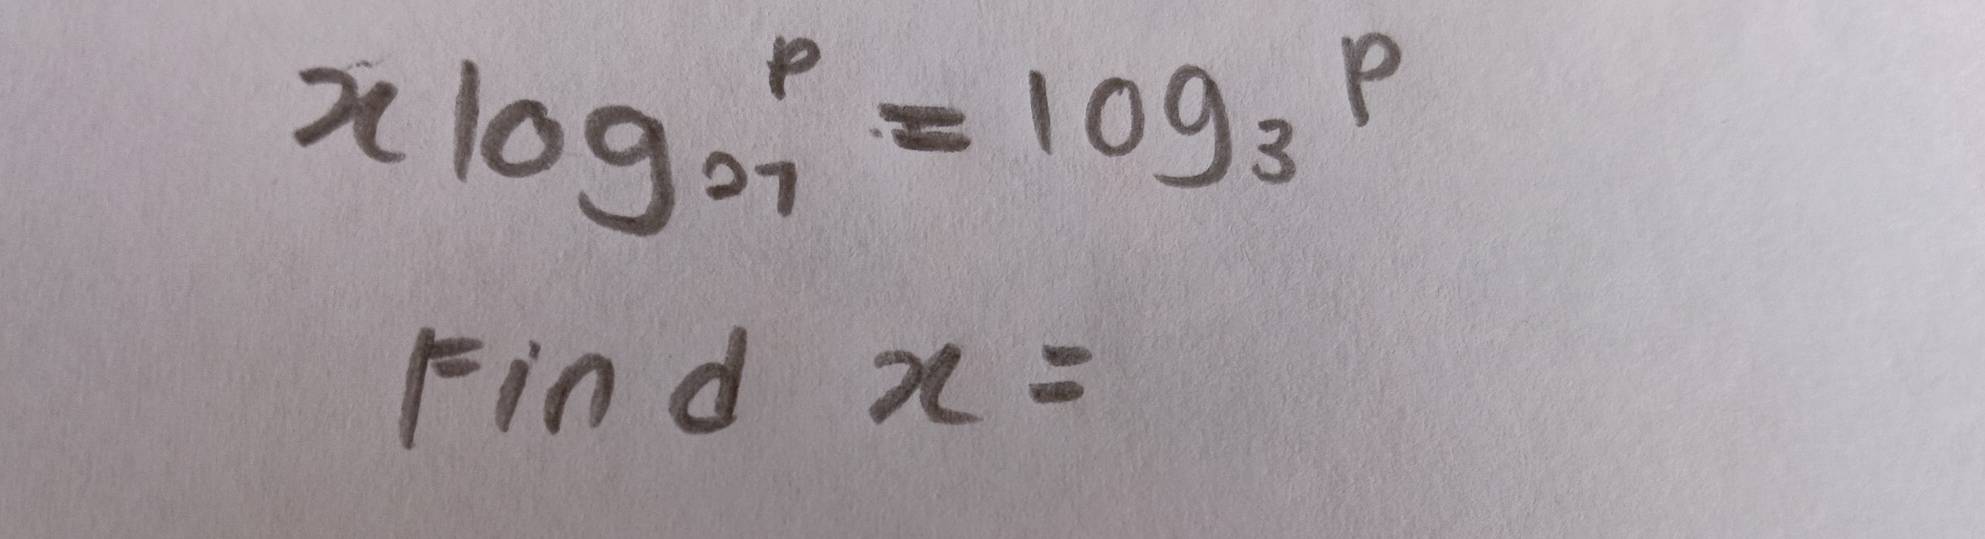 x log₂₇ᴾ = log₃ᴾ
Find x =